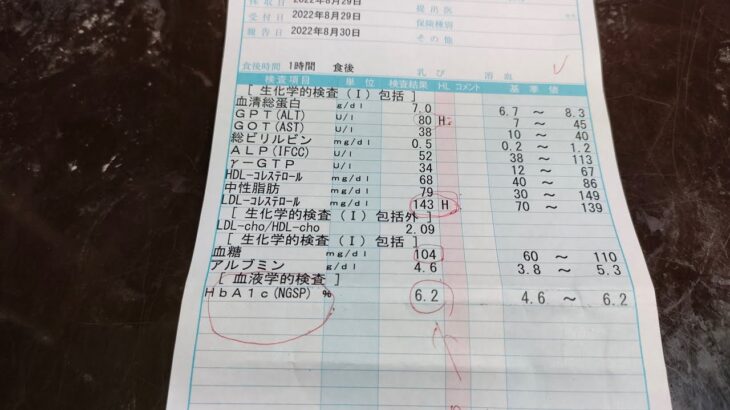 採取日 2022年8月29日 提出医
受付日 2022年8月29日 保険種別
報告日 2022年8月30日 その他
食後時間 1時間 食後 乳び 溶血
検査項目 単位 検査結果 HL コメント 基準値
[ 生化学的検査(Ⅰ)包括 ]
血清総蛋白 g/dl 7.0 6.7 ~ 8.3
GPT(ALT) U/l 80 H 7 ~ 45
GOT(AST) U/l 38 10 ~ 40
総ビリルビン mg/dl 0.5 0.2 ~ 1.2
ALP(IFCC) U/l 52 38 ~ 113
γ-GTP U/l 34 12 ~ 67
HDL-コレステロール mg/dl 68 40 ~ 86
中性脂肪 mg/dl 79 30 ~ 149
LDL-コレステロール mg/dl 143 H 70 ~ 139
[ 生化学的検査(Ⅰ)包括外 ]
LDL-cho/HDL-cho 2.09
[ 生化学的検査(Ⅰ)包括 ]
血糖 mg/dl 104 60 ~ 110
アルブミン g/dl 4.6 3.8 ~ 5.3
[ 血液学的検査 ]
HbA1c(NGSP) % 6.2 4.6 ~ 6.2